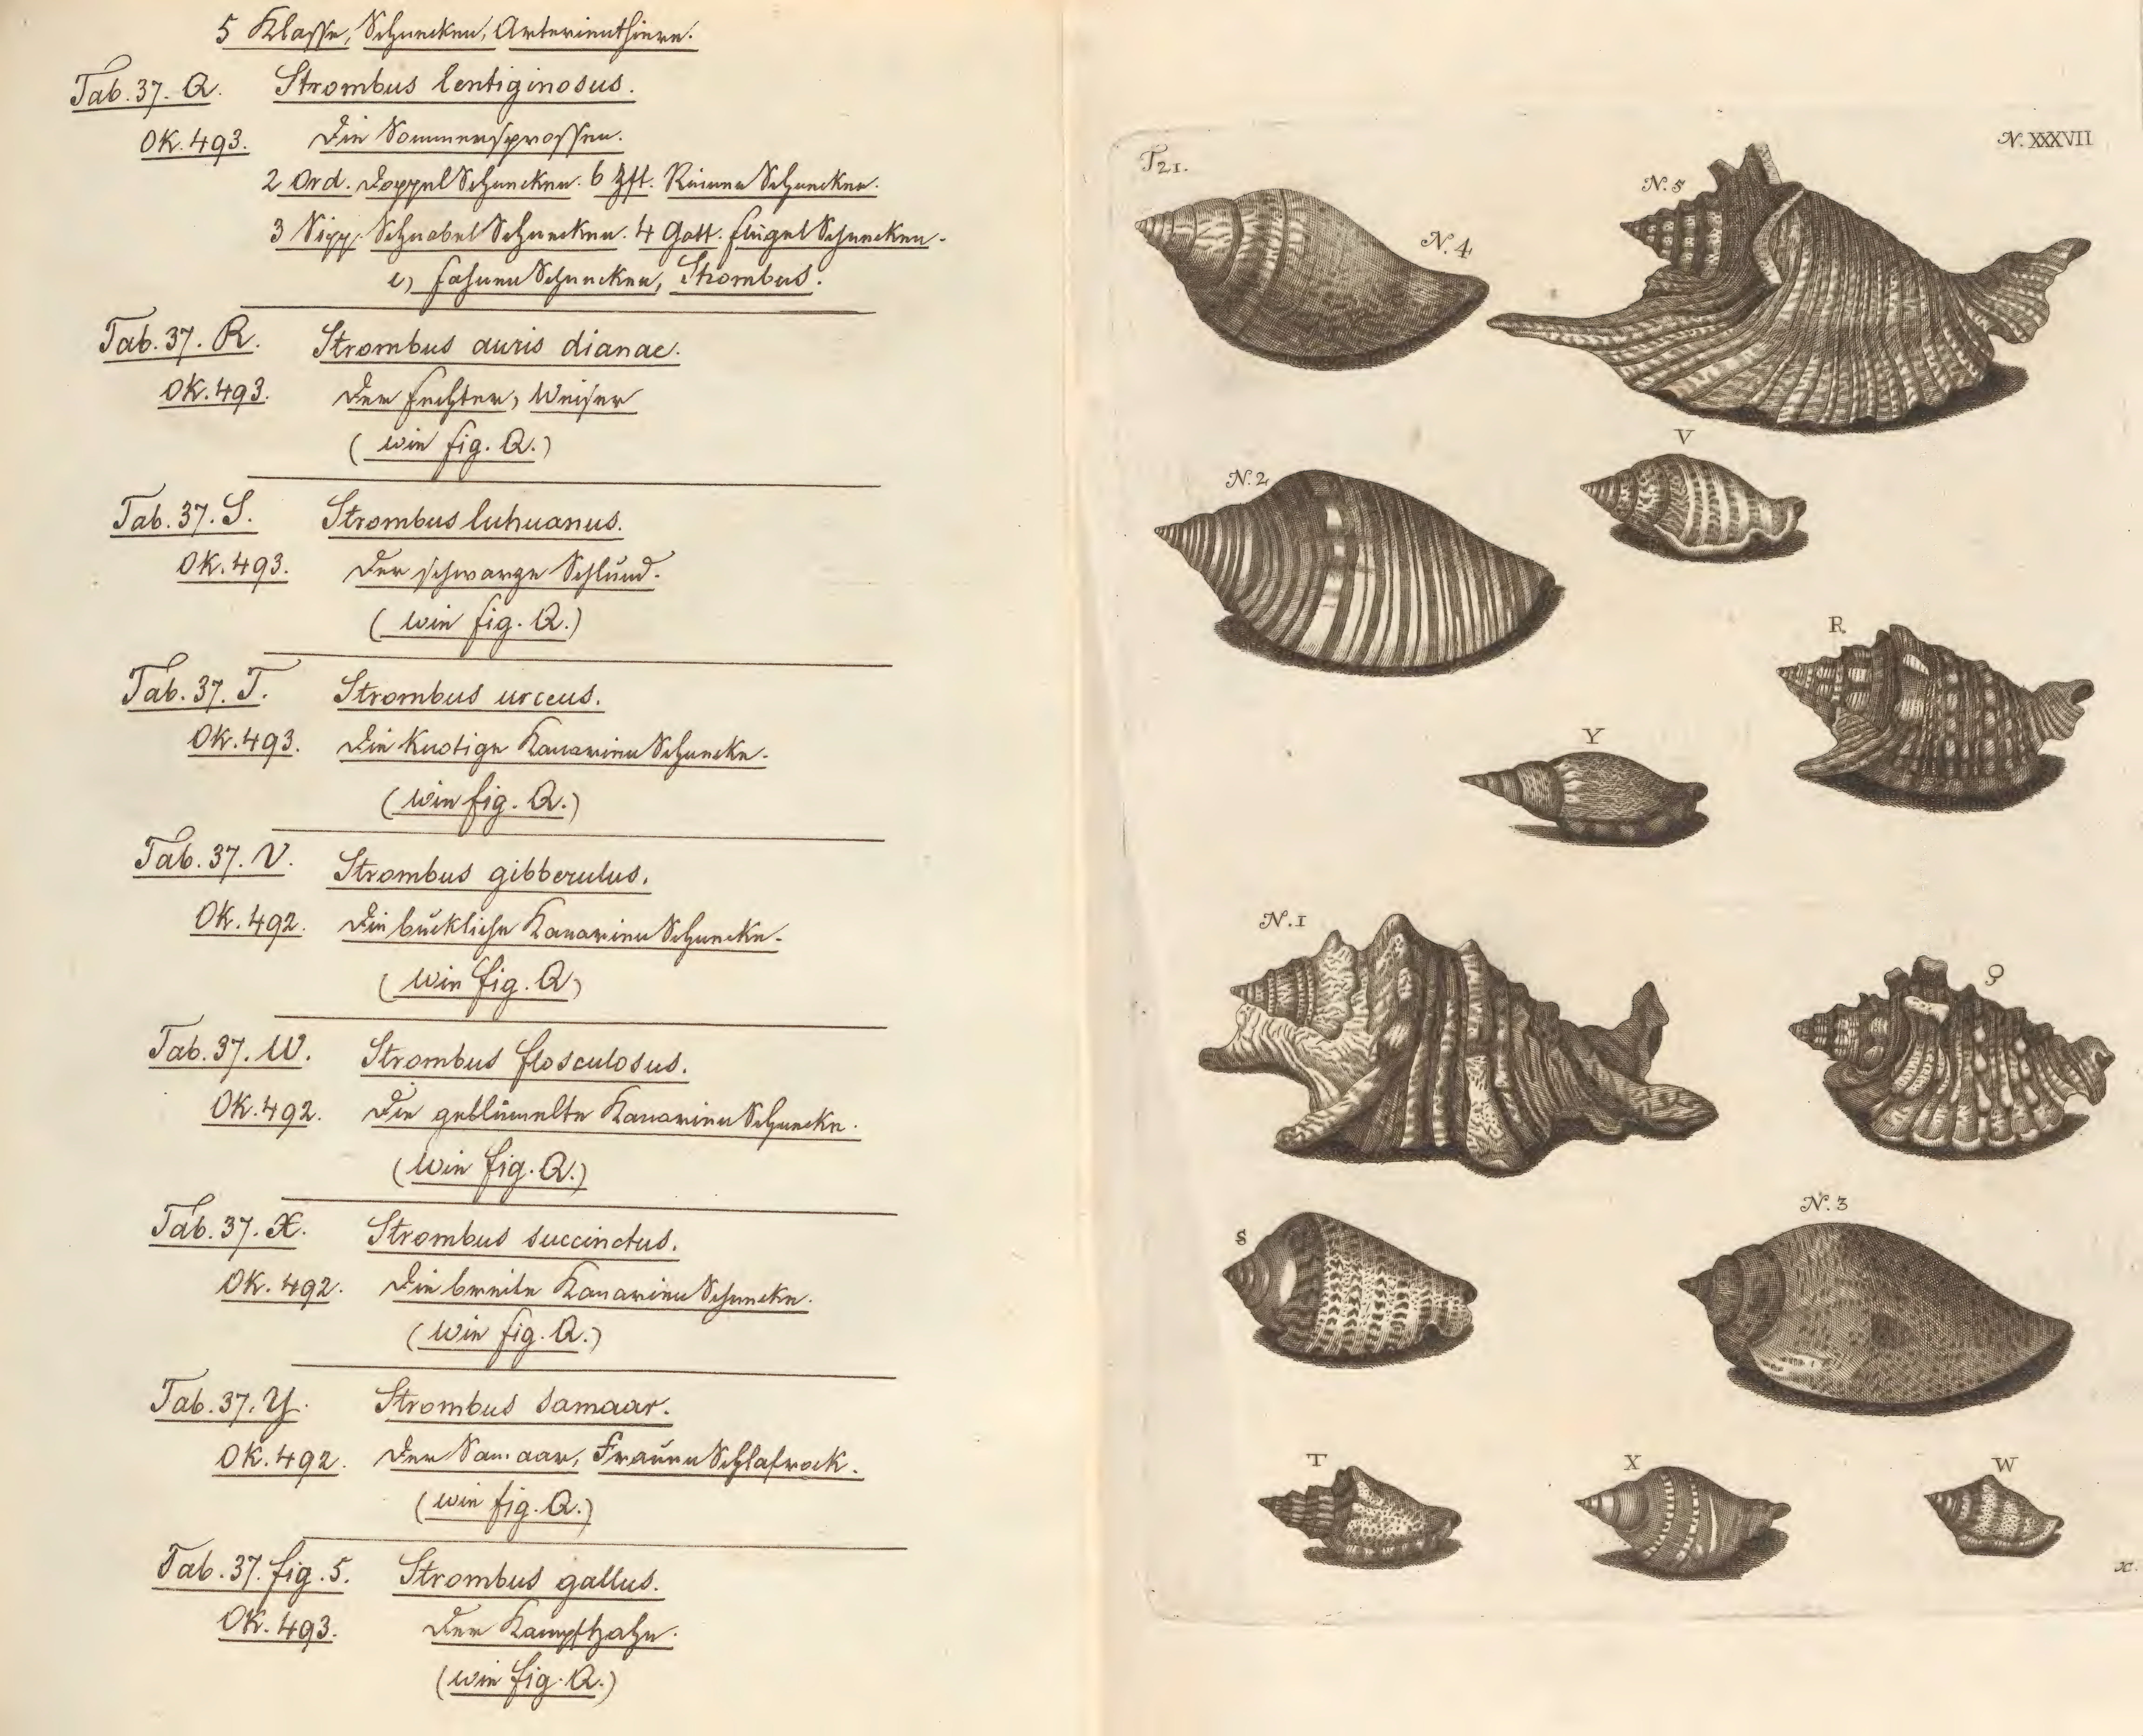 5 Klasse, Schnecken, Arterienthiere.
Tab. 37. Q. Strombus lentiginosus.
OK. 493. Die Sommersprossen.
2 Ord. Doppel Schnecken. 6 Zft. Rinnen Schnecken.
3 Sipp. Schnabel Schnecken. 4 Gatt. Flügel Schnecken.
e) Fahnen Schnecken, Strombus.
Tab. 37. R. Strombus auris dianae.
OK. 493. Der Fechter, Weiser
(wie fig. Q.)
Tab. 37. S. Strombus luhuanus.
OK. 493. Der schwarze Schlund.
(wie fig. Q.)
Tab. 37. T. Strombus urceus.
OK. 493. Die Knotige Kanarien Schnecke.
(wie fig. Q.)
Tab. 37. V. Strombus gibberulus.
OK. 492. Die buckliche Kanarien Schnecke.
(wie fig. Q)
Tab. 37. W. Strombus flosculosus.
OK. 492. Die geblümelte Kanarien Schnecke.
(wie fig. Q.)
Tab. 37. X. Strombus succinctus.
OK. 492. Die breite Kanarien Schnecke.
(wie fig. Q.)
Tab. 37. Y. Strombus samaar.
OK. 492. Der Samaar, Frauen Schlafrock.
(wie fig. Q.)
Tab. 37. fig. 5. Strombus gallus.
OK. 493. Der Kampfhahn.
(wie fig. Q.)
T 21.
N. XXXVII
N. 5
N. 4
V
N. 2
R
Y
N. 1
Q
S
N. 3
T
X
W